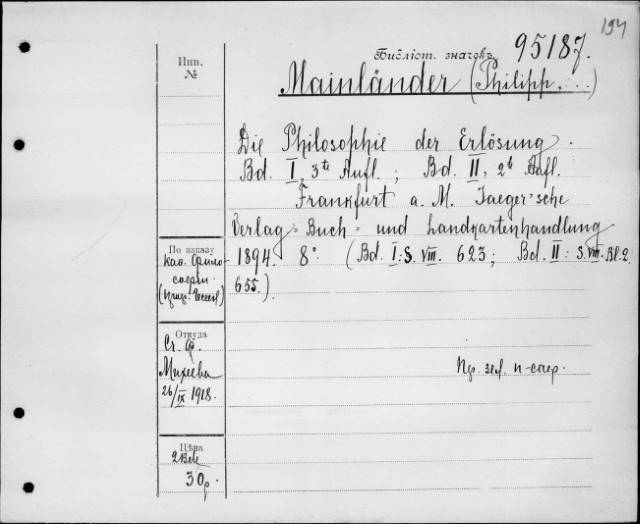 194
Инв.
№
Библіот. значекъ 95187.
Mainländer (Philipp. ...)
Die Philosophie der Erlösung.
Bd. I, 3te Aufl.; Bd. II, 2te Aufl.
Frankfurt a. M. Jaeger'sche
Verlag-Buch- und Landkartenhandlung
1894. 8° (Bd. I: S. VIII. 623; Bd. II: S. VIII. Bl. 2.
655.)
По заказу
Каб. Фило-
софіи
Откуда
Михеева
26/IX 1918.
Цѣна
2 Bde
30р.